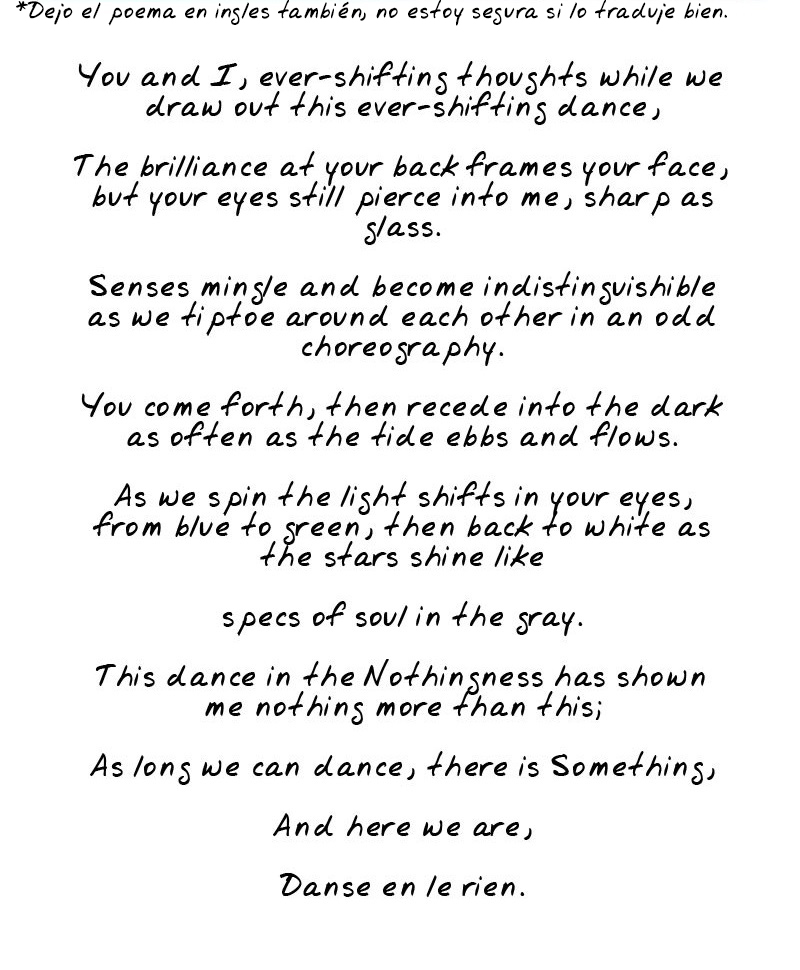 *Dejo el poema en ingles también, no estoy segura si lo traduje bien.
You and I, ever-shifting thoughts while we
draw out this ever-shifting dance,
The brilliance at your back frames your face,
but your eyes still pierce into me, sharp as
glass.
Senses mingle and become indistinguishible
as we tiptoe around each other in an odd
choreography.
You come forth, then recede into the dark
as often as the tide ebbs and flows.
As we spin the light shifts in your eyes,
from blue to green, then back to white as
the stars shine like
specs of soul in the gray.
This dance in the Nothingness has shown
me nothing more than this;
As long we can dance, there is Something,
And here we are,
Danse en le rien.